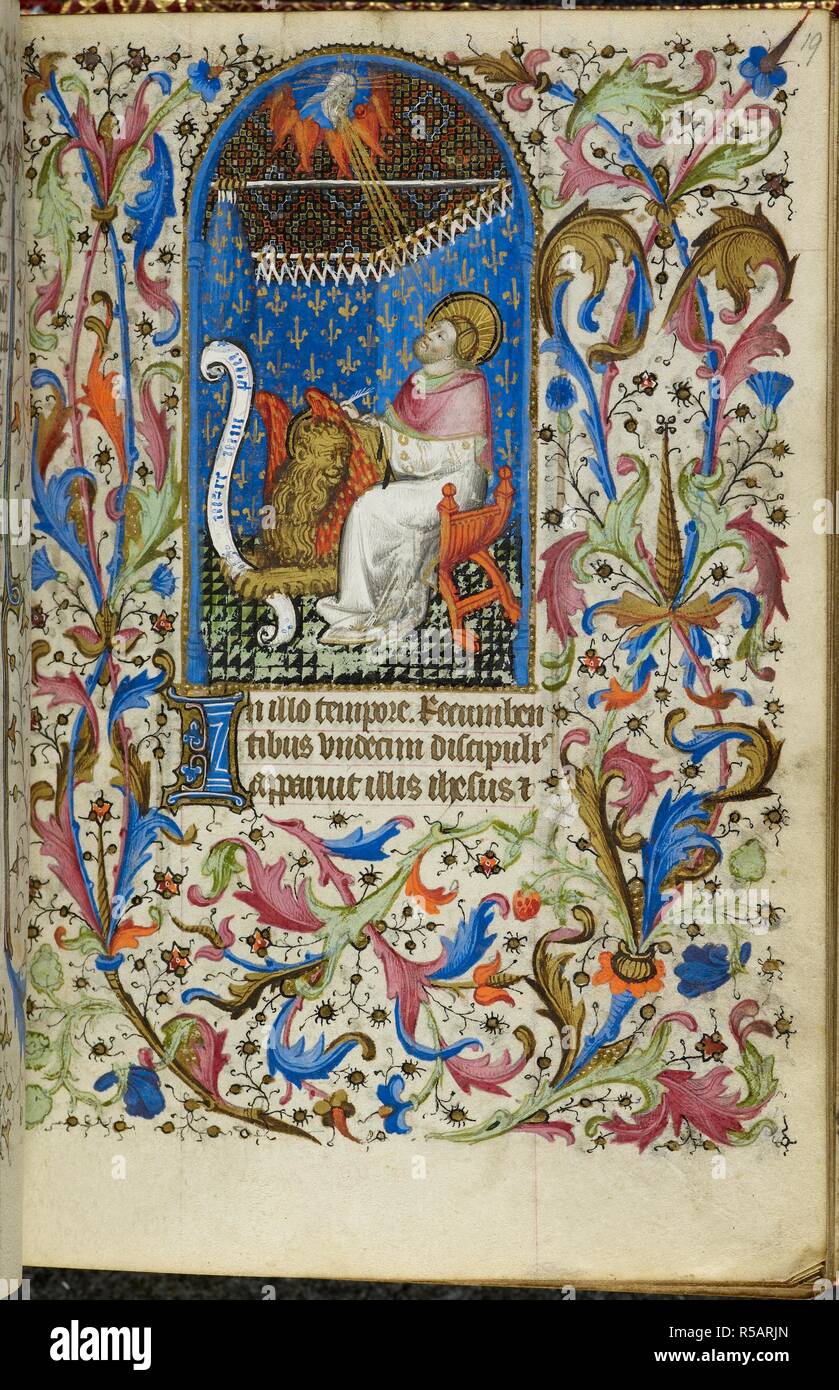 19
In illo tempore. Recumben
tibus undecim discipulis
apparuit illis ihesus τ
a alamy stock photo
alamy
Image ID: R5ARJN
www.alamy.com